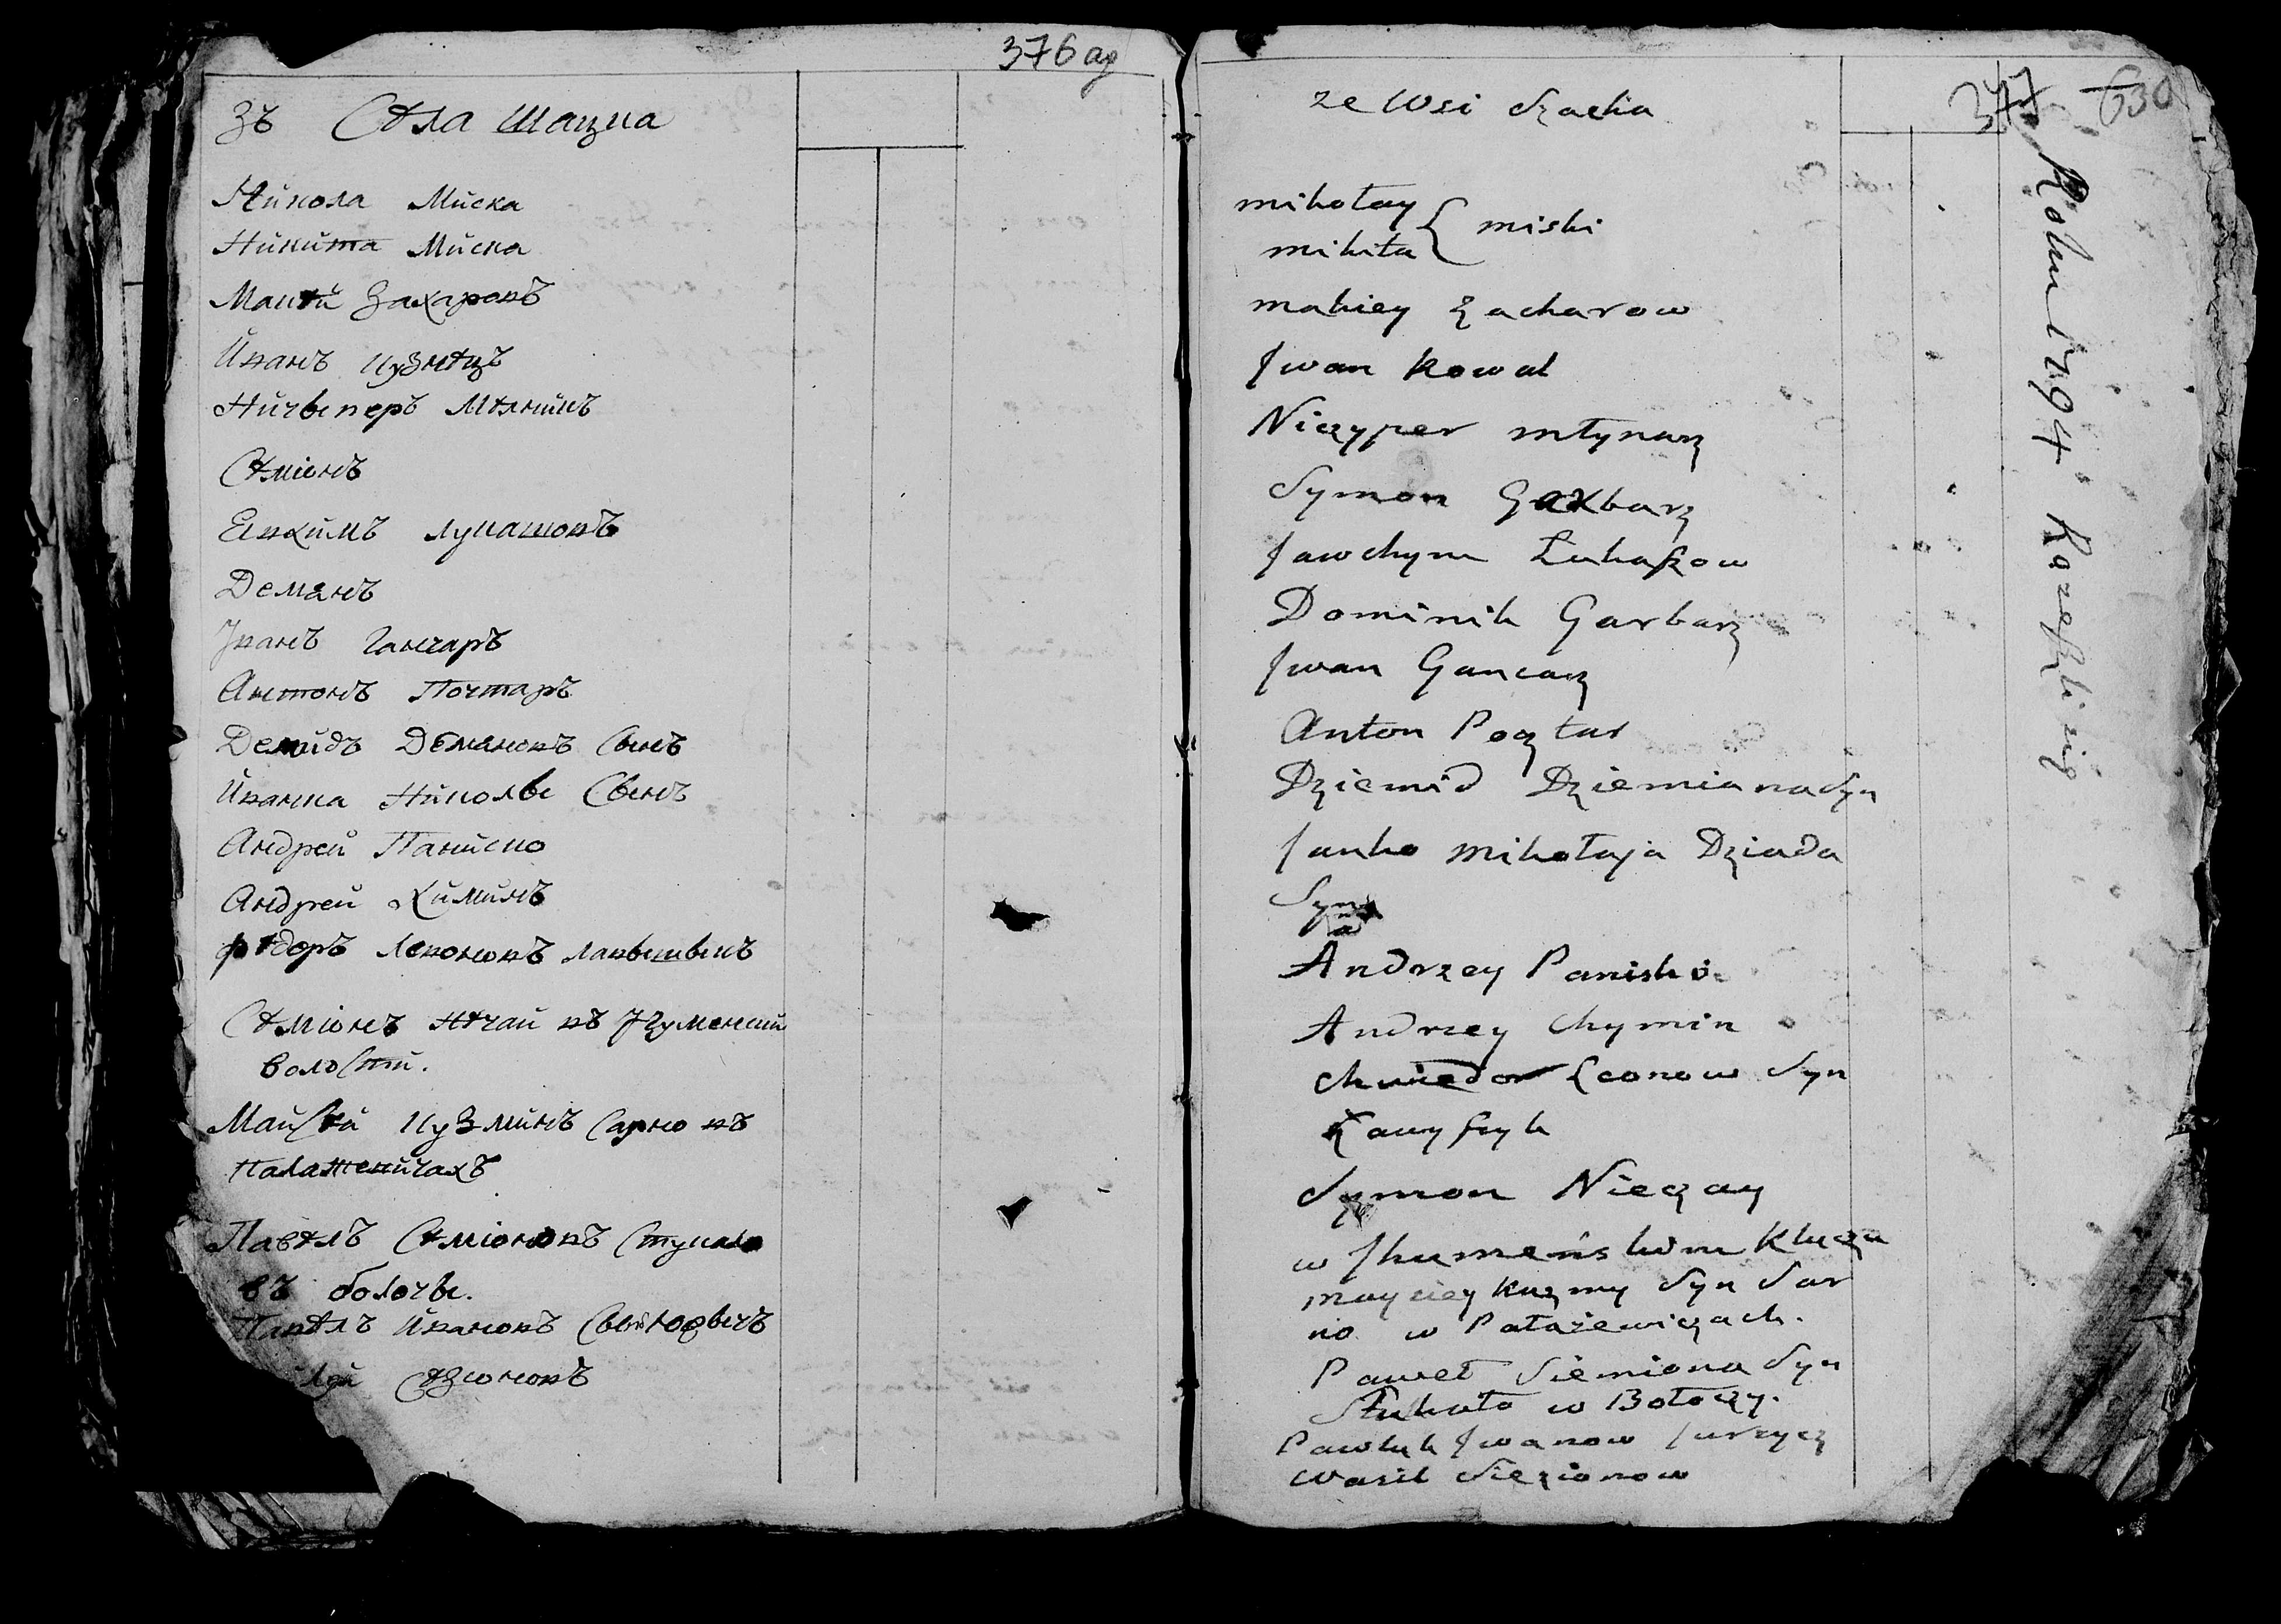 376 ад
зъ Стла Шацка
Нйкола Мйска
Нйкйта Мйска
Макѣй Захаровъ
Йванъ Кузнѣцъ
Нйчыперъ Мѣлнйкъ
Сѣміонъ
Еввхймъ Лукашовъ
Демянъ
Іванъ Ганчаръ
Антонъ Почтаръ
Демйдъ Демяновъ Сынъ
Йванка Нйколы Сынъ
Андрей Панйско
Андрей Хймйнъ
Фѣдоръ Левоновъ Лавышыкъ
Сѣміонъ Нѣчай въ Ігуменскй
волостй.
Майсѣй Кузмйнъ Сарно въ
Палажевйчахъ
Павѣлъ Сѣміоновъ Стукало
въ болочы.
Павѣлъ Йвановъ Сынъ
Сѣзіоновъ
ze Wsi Szacka
347 630
mikołay { miski
mikita
makiey Zacharow
Jwan Kowal
Niczyper młynarz
Symon Garbarz
Jawchym Łukaszow
Dominik Garbarz
Jwan Gancarz
Anton Pocztar
Dziemid Dziemiana Syn
Janko mikołaja Dziada
Syn
Andrzey Panisko
Andrzey Chymin
Chwiedor Leonow Syn
Ławyszyk
Symon Nieczay
w Jhumeńskim Kluczu
mayciey Kuzmy Syn Sar
no w Pałażewiczach.
Paweł Siemiona Syn
Stukało w Bołoczy.
Pawluk Jwanow Jurzycz
Wasil Siezionow
Roku 1794